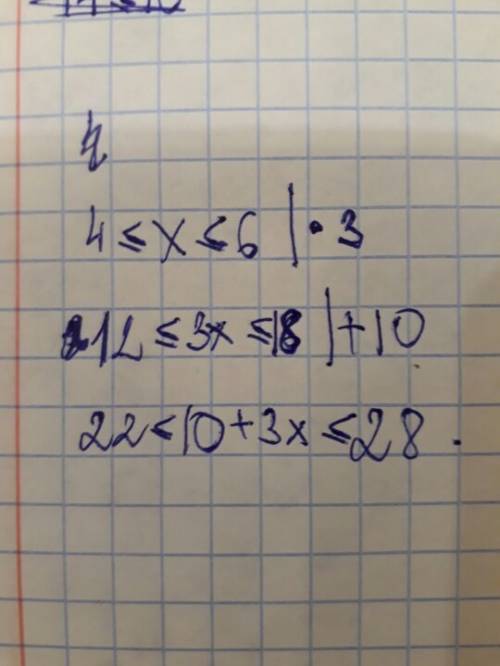 4 ≤ x ≤ 6 | · 3
12 ≤ 3x ≤ 18 | + 10
22 ≤ 10 + 3x ≤ 28.